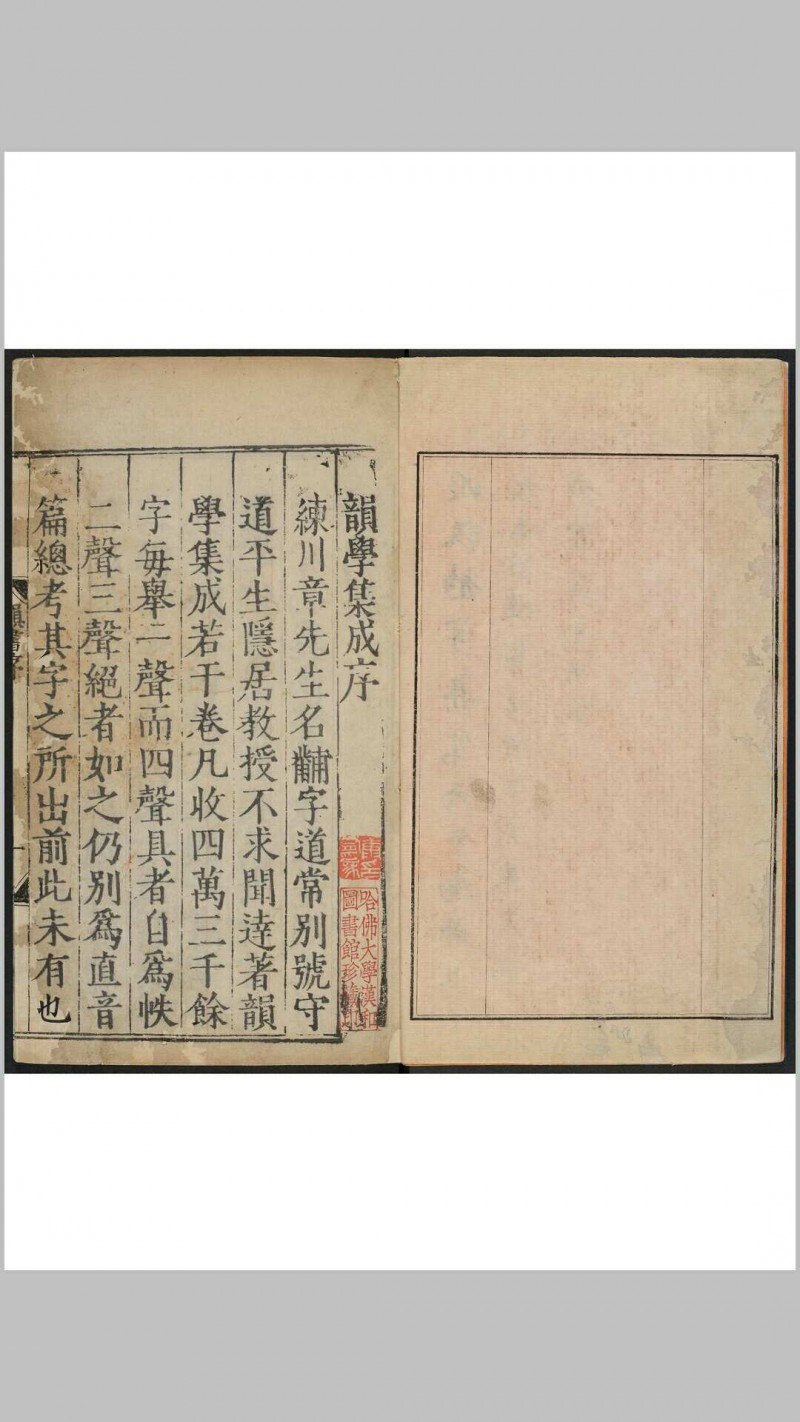 韻學集成序
練川章先生名黼字道常別號守
道平生隱居教授不求聞達著韻
學集成若干卷凡收四萬三千餘
字每舉一聲而四聲具者自爲帙
二聲三聲絕者如之仍別爲直音
篇總考其字之所出前此未有也
韻書序
哈佛大學漢和
圖書館珍藏印